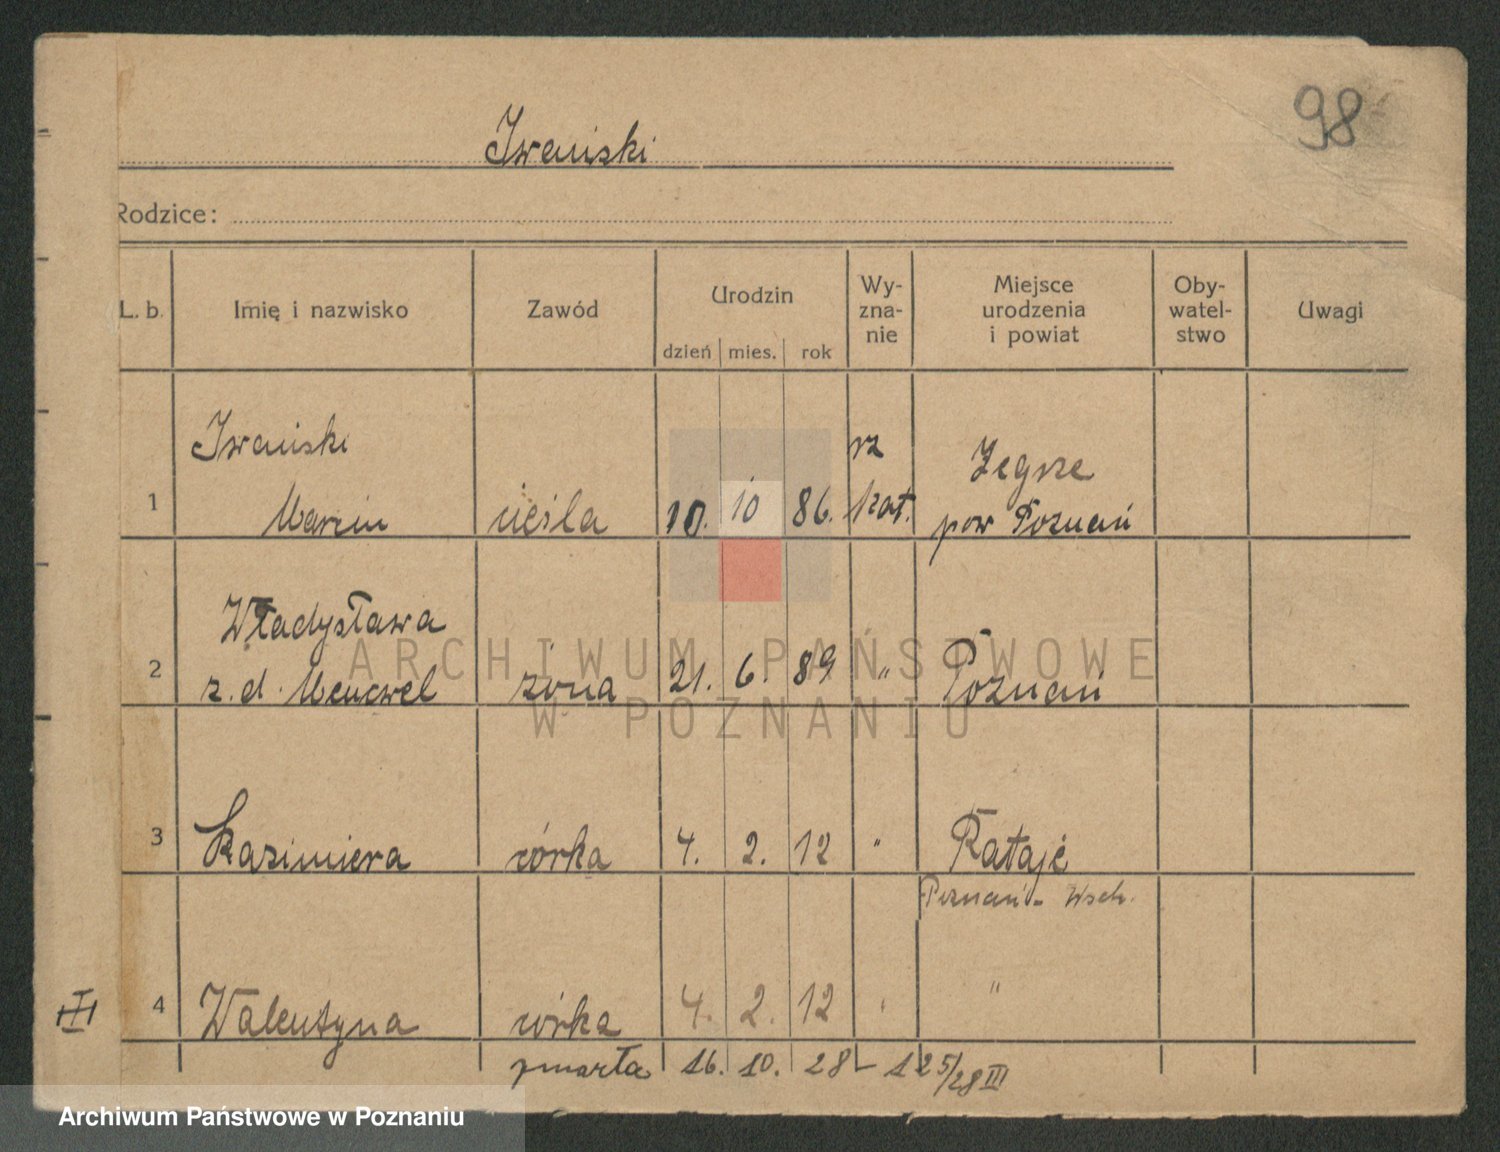 98
Iwański
Rodzice:
L. b. Imię i nazwisko Zawód Urodzin dzień mies. rok Wy-zna-nie Miejsce urodzenia i powiat Oby-watel-stwo Uwagi
Iwański rz Zegrze
1 Marcin cieśla 10. 10 86. kat. pow Poznań
Władysława
2 z. d. Menczel żona 21. 6. 89 " Poznań
3 Kazimiera córka 4. 2. 12 " Rataje
Poznań - Wsch.
III 4 Walentyna córka 4. 2. 12 " "
zmarła 16. 10. 28 - 125/28 III
ARCHIWUM PAŃSTWOWE
W POZNANIU
Archiwum Państwowe w Poznaniu